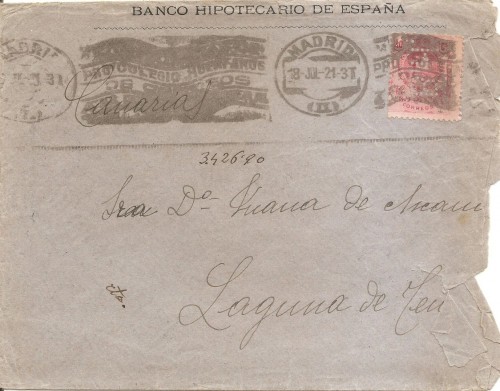 BANCO HIPOTECARIO DE ESPAÑA
MADRID
PRO COLEGIO HUERFANOS
DE CORREOS
MADRID
18-JUL-21-3T
Canarias
342690
Sra Dª Juana de
Laguna de Ten